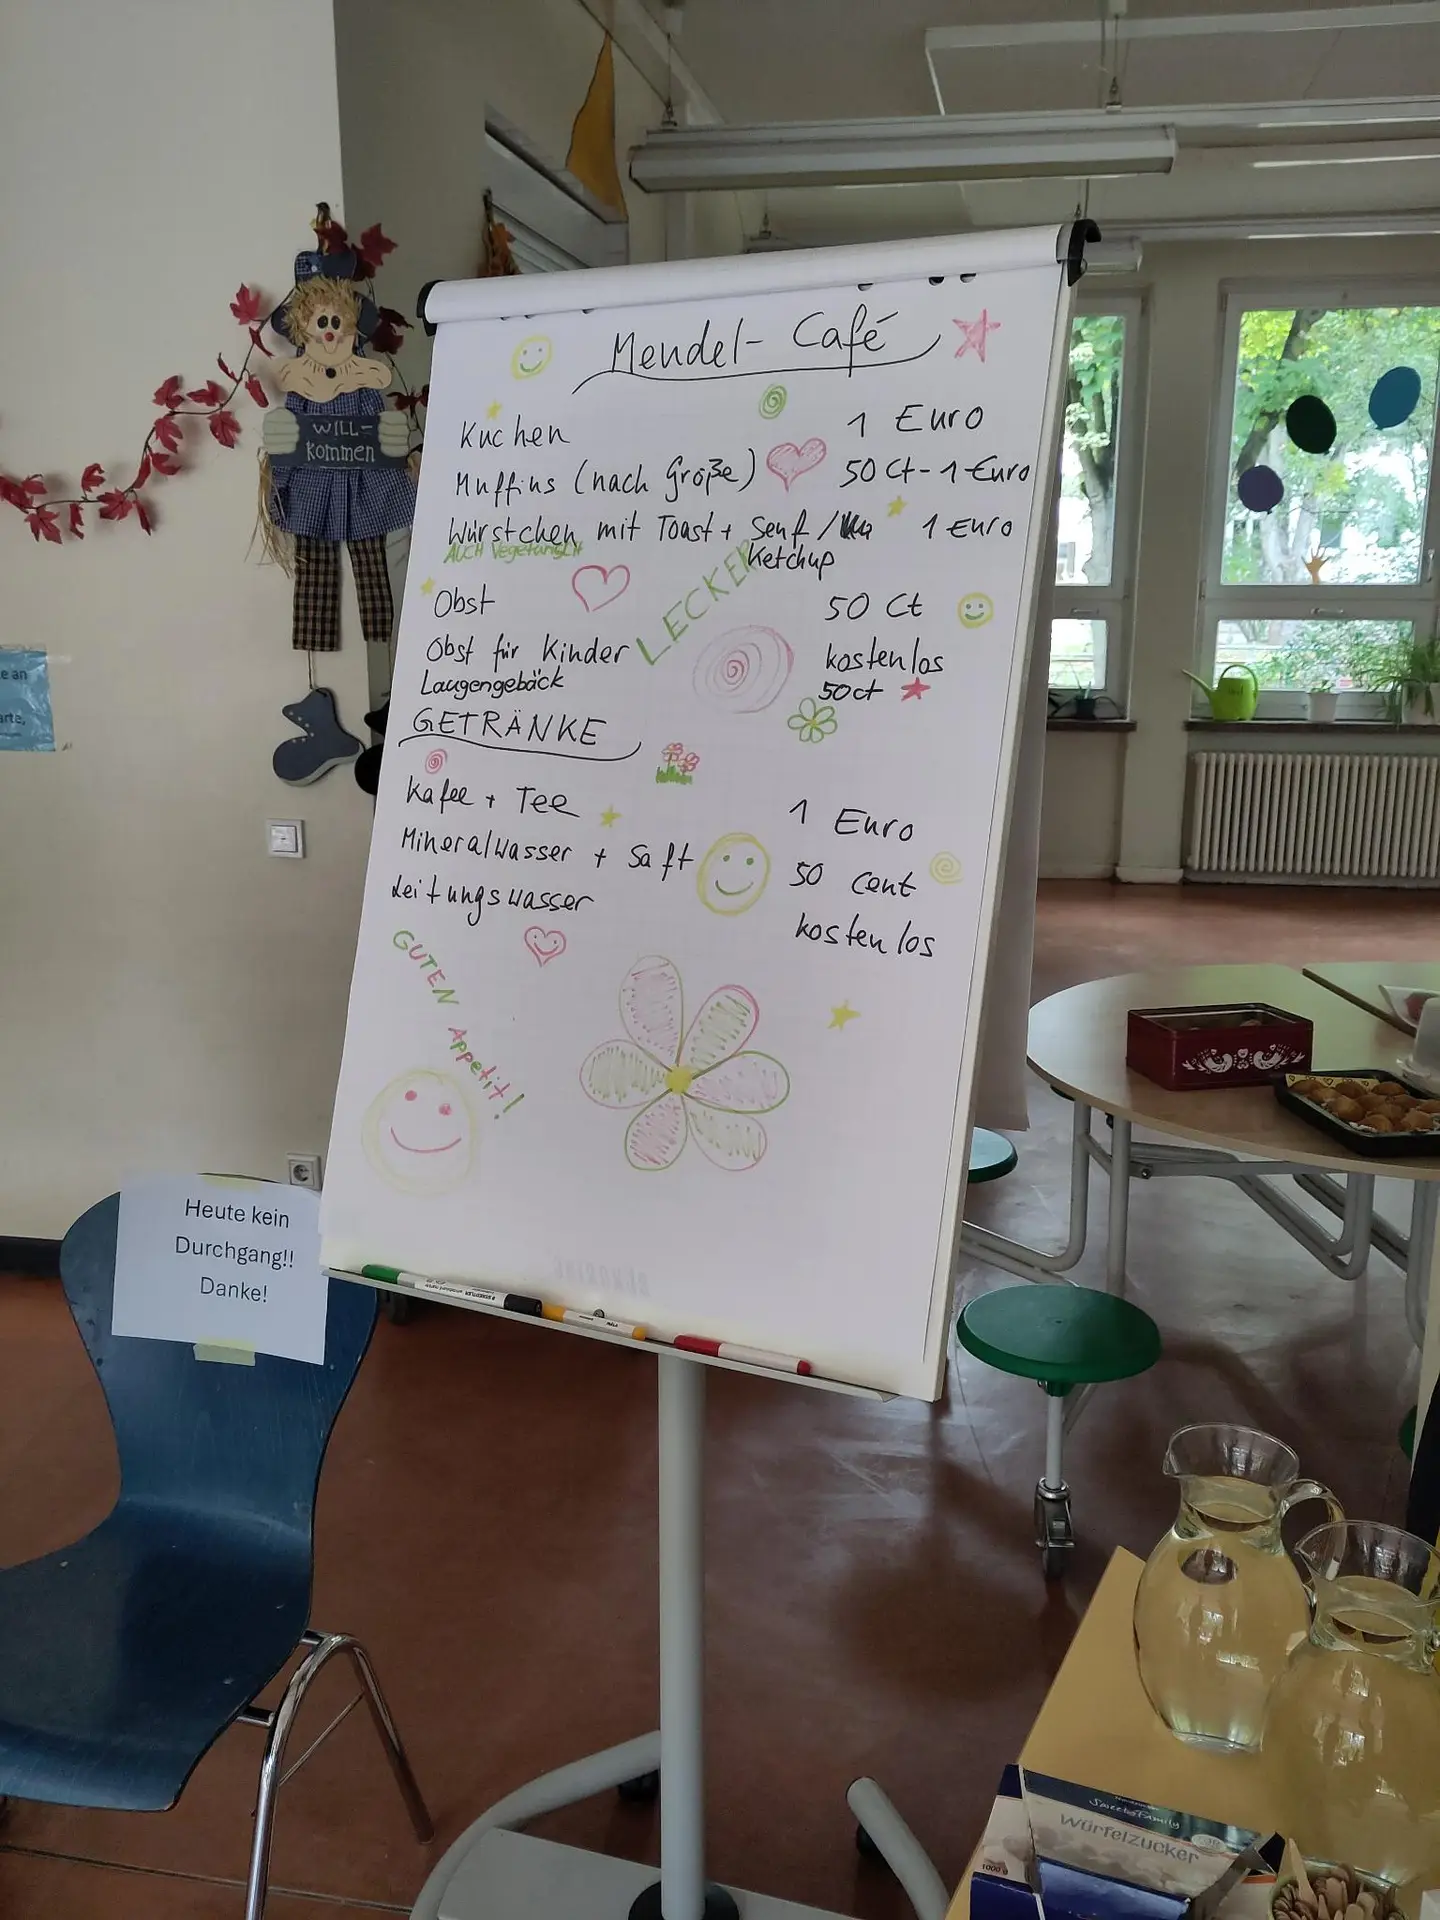 Mendel-Café
Kuchen 1 Euro
Muffins (nach Größe) 50 Ct - 1 Euro
Würstchen mit Toast + Senf / 1 Euro
Ketchup
AUCH Vegetarisch
LECKER
Obst 50 Ct
Obst für Kinder kostenlos
Laugengebäck 50ct
GETRÄNKE
Kafee + Tee 1 Euro
Mineralwasser + Saft 50 Cent
Leitungswasser kostenlos
GUTEN Appetit!
WILL-
kommen
Heute kein
Durchgang!!
Danke!
Sweet Family
Würfelzucker
1000 g